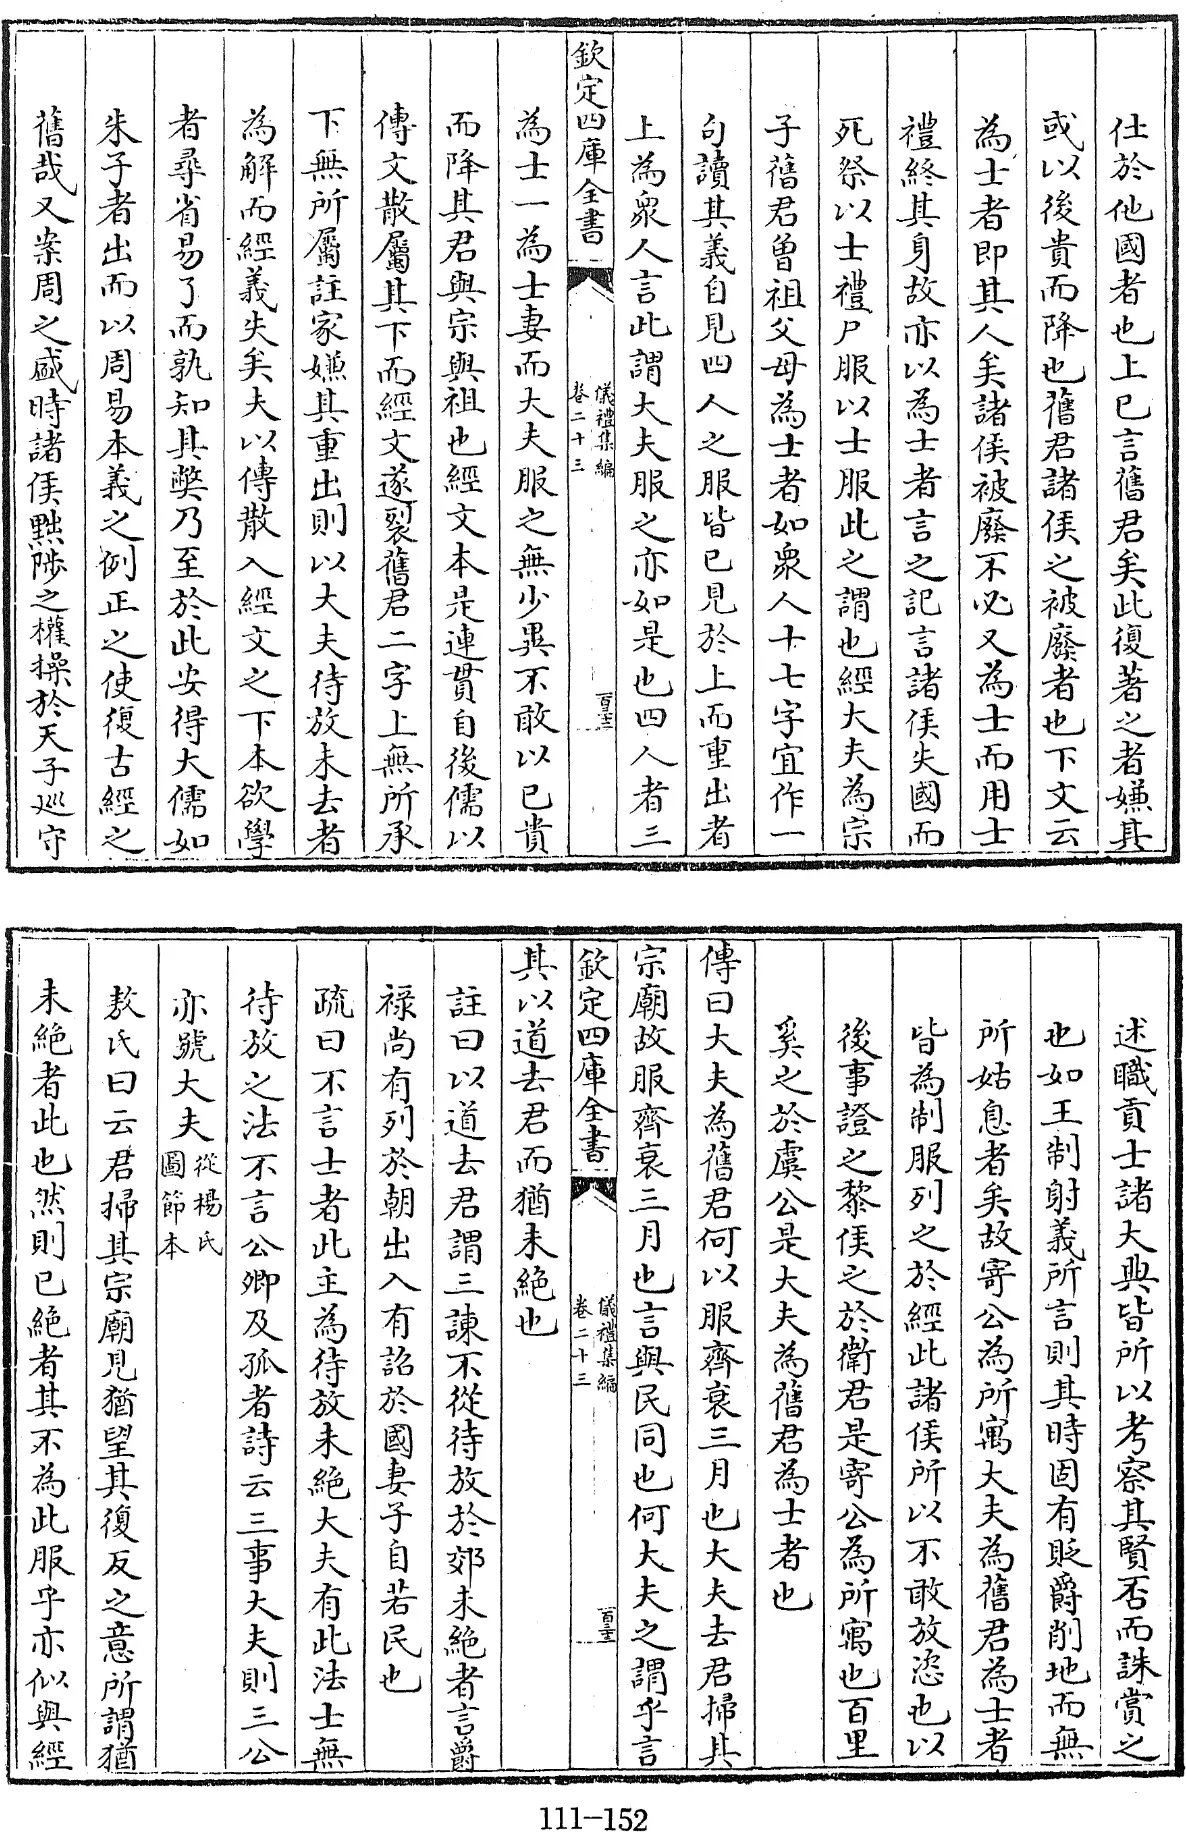 仕於他國者也上已言舊君矣此復著之者嫌其
或以後貴而降也舊君諸侯之被廢者也下文云
為士者即其人矣諸侯被廢不必又為士而用士
禮終其身故亦以為士者言之記言諸侯失國而
死祭以士禮尸服以士服此之謂也經大夫為宗
子舊君曾祖父母為士者如衆人十七字宜作一
句讀其義自見四人之服皆已見於上而重出者
上為衆人言此謂大夫服之亦如是也四人者三
欽定四庫全書
儀禮集編
卷二十三
為士一為士妻而大夫服之無少異不敢以已貴
而降其君與宗與祖也經文本是連貫自後儒以
傳文散屬其下而經文遂裂舊君二字上無所承
下無所屬註家嫌其重出則以大夫待放未去者
為解而經義失矣夫以傳散入經文之下本欲學
者尋省易了而孰知其獘乃至於此安得大儒如
朱子者出而以周易本義之例正之使復古經之
舊哉又案周之盛時諸侯黜陟之權操於天子巡守
述職貢士諸大典皆所以考察其賢否而誅賞之
也如王制射義所言則其時固有貶爵削地而無
所姑息者矣故寄公為所寓大夫為舊君為士者
皆為制服列之於經此諸侯所以不敢放恣也以
後事證之黎侯之於衛君是寄公為所寓也百里
奚之於虞公是大夫為舊君為士者也
傳曰大夫為舊君何以服齊衰三月也大夫去君掃其
宗廟故服齊衰三月也言與民同也何大夫之謂乎言
欽定四庫全書
儀禮集編
卷二十三
其以道去君而猶未絶也
註曰以道去君謂三諫不從待放於郊未絶者言爵
祿尚有列於朝出入有詔於國妻子自若民也
疏曰不言士者此主為待放未絶大夫有此法士無
待放之法不言公卿及孤者詩云三事大夫則三公
亦號大夫從楊氏圖節本
敖氏曰云君掃其宗廟見猶望其復反之意所謂猶
未絶者此也然則已絶者其不為此服乎亦似與經
111-152